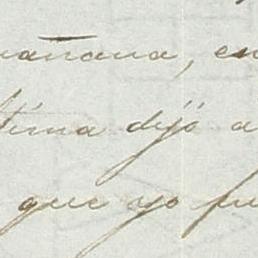 mañana, en
tima dijó a
que yo fu